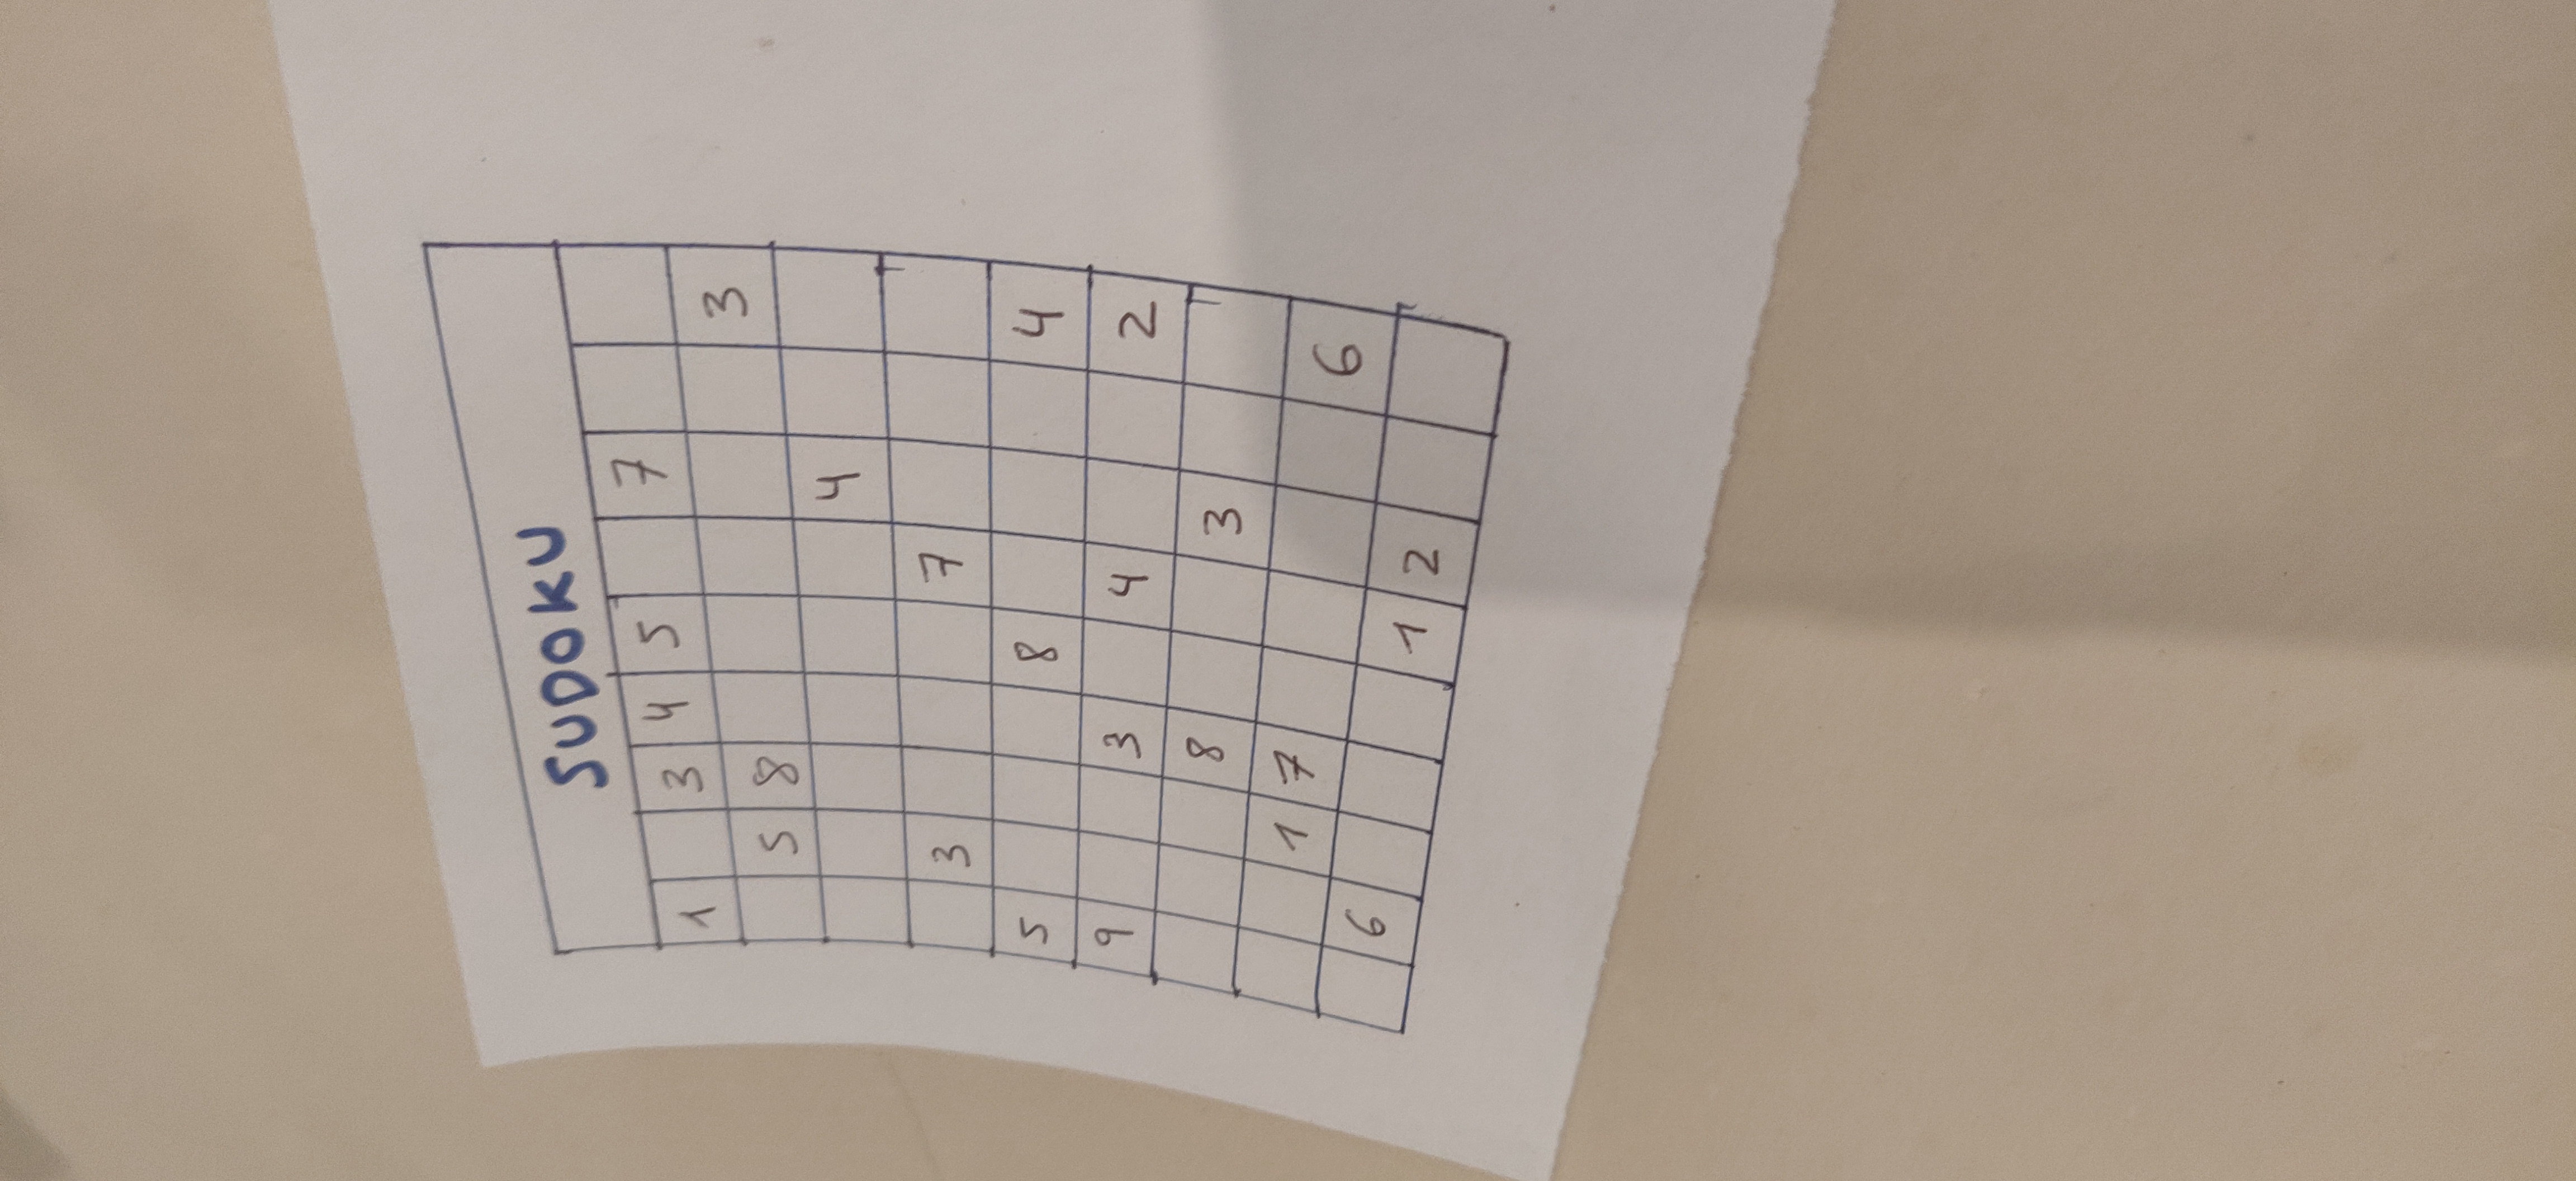 SUDOKU
1 3 4 5 7
5 8 3
4
3 7
5 8 4
9 3 4 2
8 3
1 7 6
6 1 2